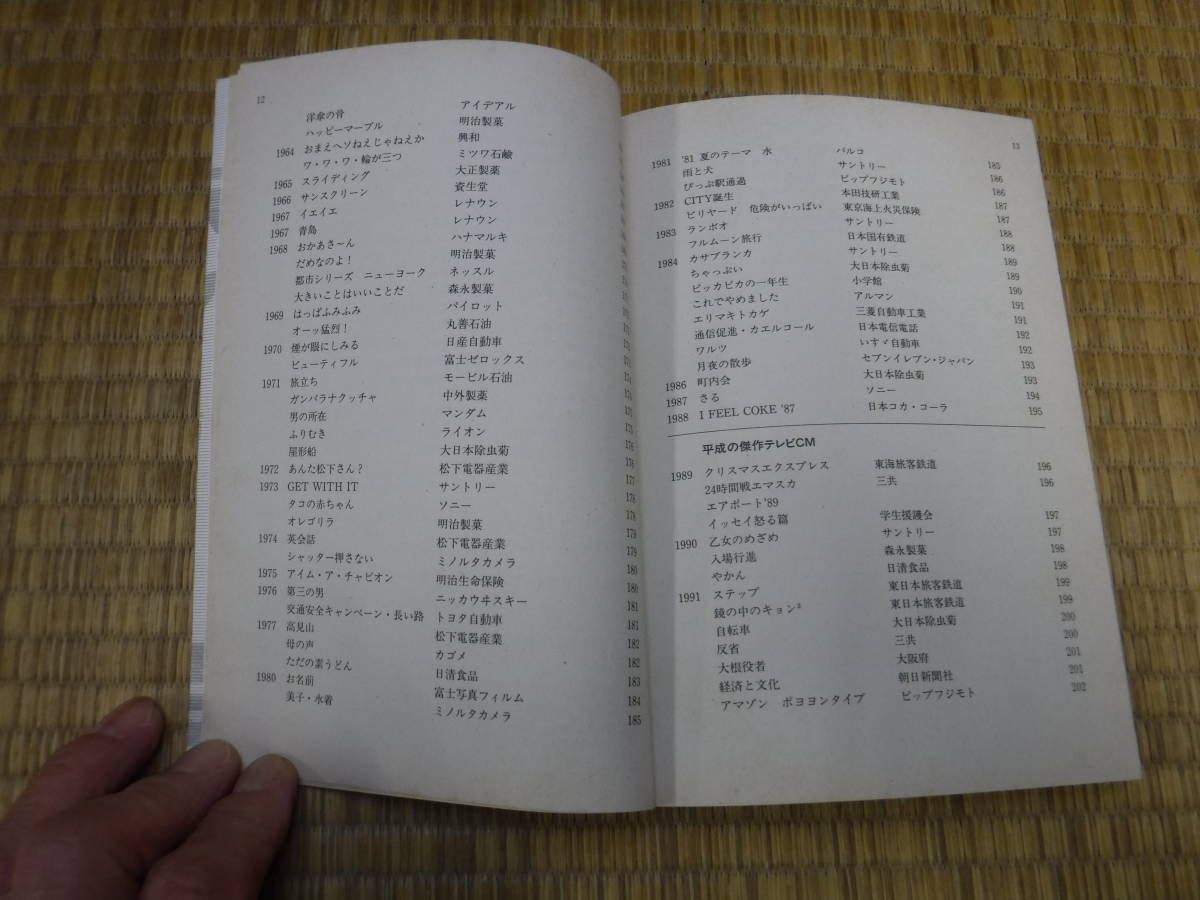 12
洋傘の骨 アイデアル
ハッピーマーブル 明治製菓
1964 おまえヘソねえじゃねえか 興和
ワ・ワ・ワ・輪が三つ ミツワ石鹸
1965 スライディング 大正製薬
1966 サンスクリーン 資生堂
1967 イエイエ レナウン
1967 青島 レナウン
1968 おかあさ〜ん ハナマルキ
だめなのよ! 明治製菓
都市シリーズ ニューヨーク ネッスル
大きいことはいいことだ 森永製菓
1969 はっぱふみふみ パイロット
オーッ猛烈! 丸善石油
1970 煙が眼にしみる 日産自動車
ビューティフル 富士ゼロックス
1971 旅立ち モービル石油 174
ガンバラナクッチャ 中外製薬 175
男の所在 マンダム 175
ふりむき ライオン 176
屋形船 大日本除虫菊 176
1972 あんた松下さん? 松下電器産業 177
1973 GET WITH IT サントリー 178
タコの赤ちゃん ソニー 178
オレゴリラ 明治製菓 179
1974 英会話 松下電器産業 179
シャッター押さない ミノルタカメラ 180
1975 アイム・ア・チャピオン 明治生命保険 180
1976 第三の男 ニッカウヰスキー 181
交通安全キャンペーン・長い路 トヨタ自動車 181
1977 高見山 松下電器産業 182
母の声 カゴメ 182
ただの素うどん 日清食品 183
1980 お名前 富士写真フィルム 184
美子・水着 ミノルタカメラ 185
13
1981 '81 夏のテーマ 水 パルコ 185
雨と犬 サントリー 186
ぴっぷ駅通過 ピップフジモト 186
1982 CITY誕生 本田技研工業 187
ビリヤード 危険がいっぱい 東京海上火災保険 187
1983 ランボオ サントリー 188
フルムーン旅行 日本国有鉄道 188
1984 カサブランカ サントリー 189
ちゃっぷい 大日本除虫菊 189
ピッカピカの一年生 小学館 190
これでやめました アルマン 191
エリマキトカゲ 三菱自動車工業 191
通信促進・カエルコール 日本電信電話 192
ワルツ いすゞ自動車 192
月夜の散歩 セブンイレブン・ジャパン 193
1986 町内会 大日本除虫菊 193
1987 さる ソニー 194
1988 I FEEL COKE '87 日本コカ・コーラ 195
平成の傑作テレビCM
1989 クリスマスエクスプレス 東海旅客鉄道 196
24時間戦エマスカ 三共 196
エアポート'89
イッセイ怒る篇 学生援護会 197
1990 乙女のめざめ サントリー 197
入場行進 森永製菓 198
やかん 日清食品 198
1991 ステップ 東日本旅客鉄道 199
鏡の中のキョン² 東日本旅客鉄道 199
自転車 大日本除虫菊 200
反省 三共 200
大根役者 大阪府 201
経済と文化 朝日新聞社 201
アマゾン ボヨヨンタイプ ピップフジモト 202